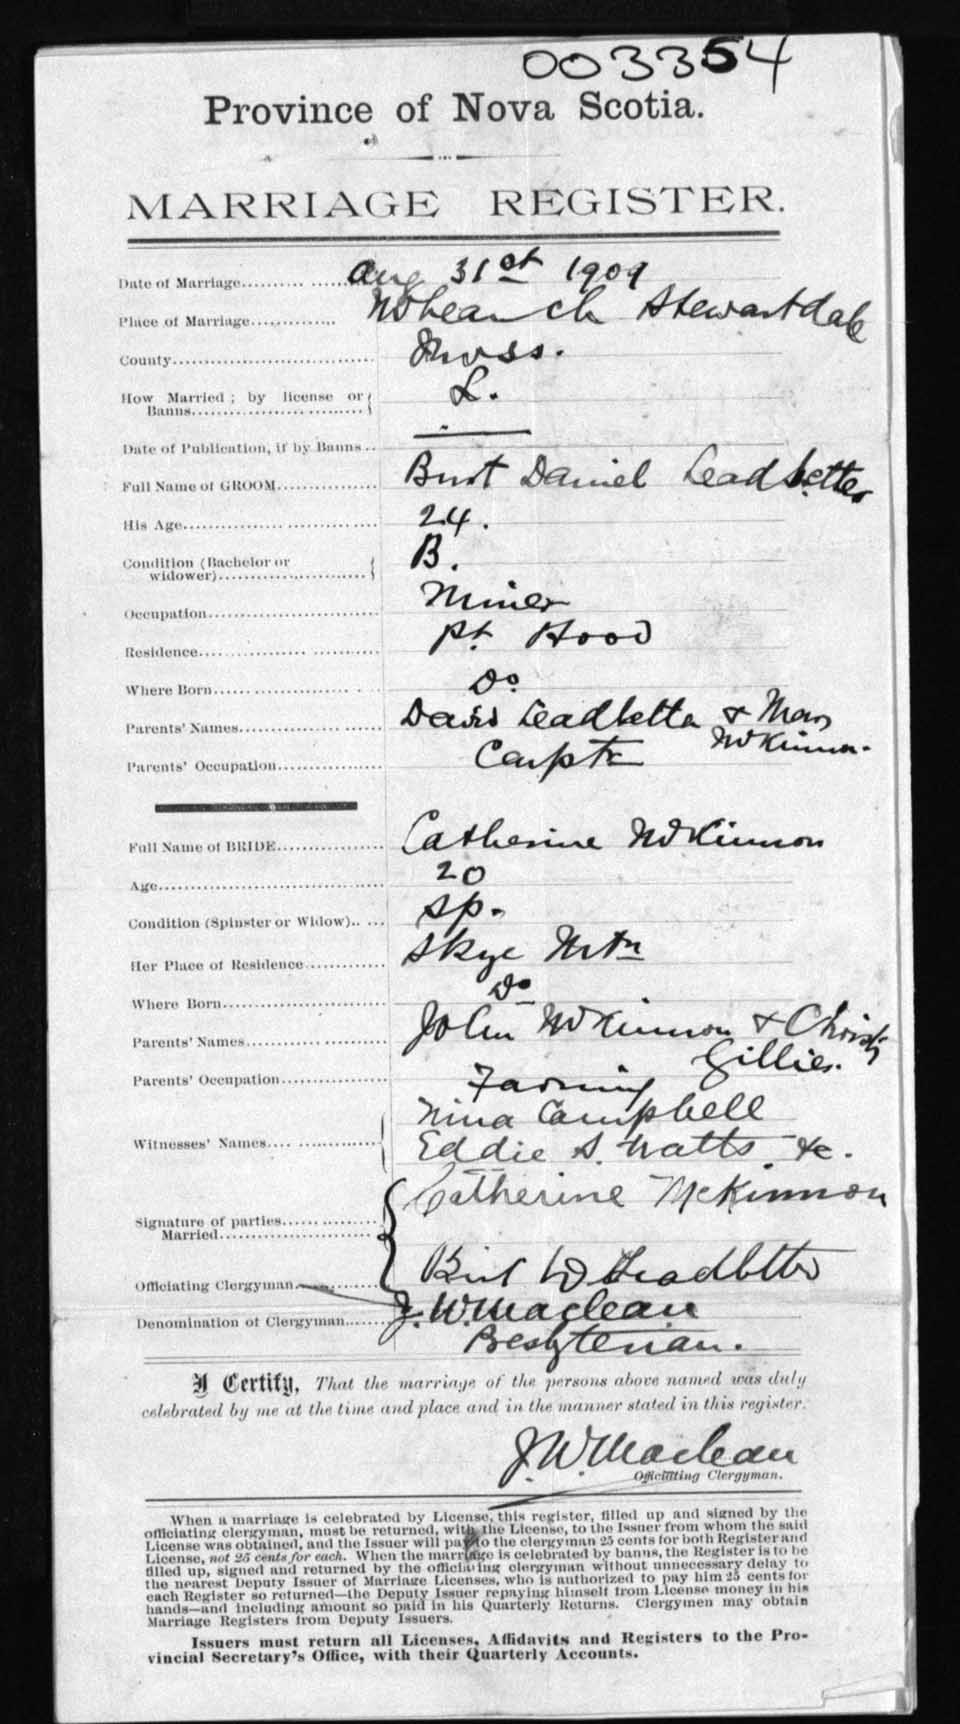 003354
Province of Nova Scotia.
MARRIAGE REGISTER.
Date of Marriage Aug 31st 1909
Place of Marriage Stewartdale
County Invss.
How Married ; by license or
Banns L.
Date of Publication, if by Banns —
Full Name of GROOM Burt Daniel Leadbetter
His Age 24.
Condition (Bachelor or
widower) B.
Occupation Miner
Residence Pt. Hood
Where Born Do
Parents' Names David Leadbetter & Mary
McKinnon.
Parents' Occupation Carptr
Full Name of BRIDE Catherine McKinnon
Age 20
Condition (Spinster or Widow) Sp.
Her Place of Residence Skye Mtn
Where Born Do
Parents' Names John McKinnon & Christy
Gillies.
Parents' Occupation Farming
Nina Campbell
Witnesses' Names Eddie S. Watts &c.
Catherine McKinnon
Signature of parties
Married
Burt D Leadbetter
Officiating Clergyman J. W. Maclean
Denomination of Clergyman Presbyterian.
I Certify, That the marriage of the persons above named was duly
celebrated by me at the time and place and in the manner stated in this register.
J. W. Maclean
Officiating Clergyman.
When a marriage is celebrated by License, this register, filled up and signed by the
officiating clergyman, must be returned, with the License, to the Issuer from whom the said
License was obtained, and the Issuer will pay to the clergyman 25 cents for both Register and
License, not 25 cents for each. When the marriage is celebrated by banns, the Register is to be
filled up, signed and returned by the officiating clergyman without unnecessary delay to
the nearest Deputy Issuer of Marriage Licenses, who is authorized to pay him 25 cents for
each Register so returned—the Deputy Issuer repaying himself from License money in his
hands—and including amount so paid in his Quarterly Returns. Clergymen may obtain
Marriage Registers from Deputy Issuers.
Issuers must return all Licenses, Affidavits and Registers to the Pro-
vincial Secretary's Office, with their Quarterly Accounts.